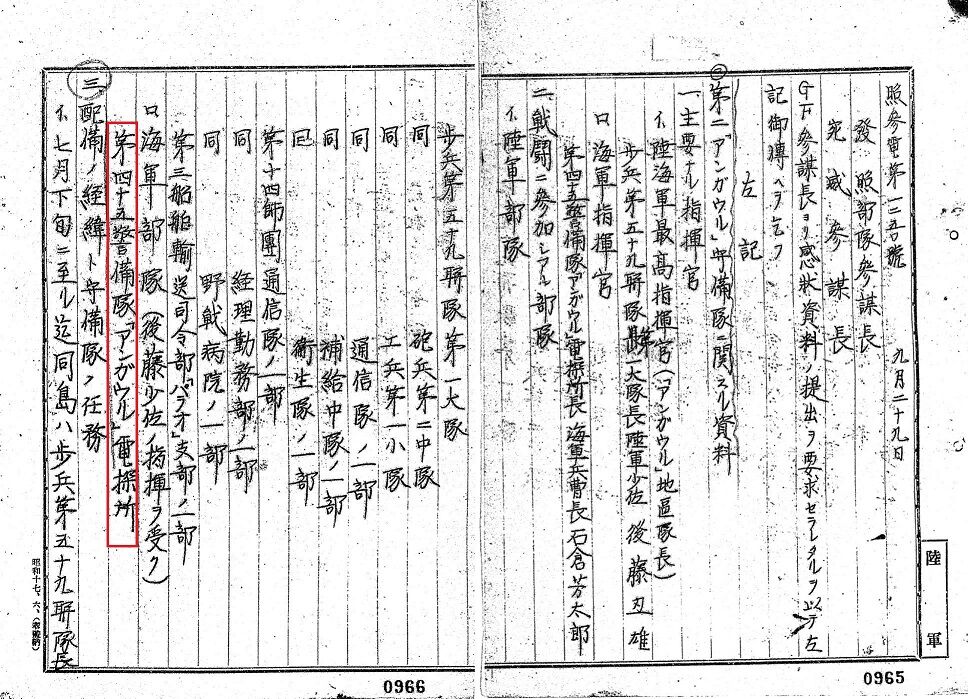 照參電第一三五號
九月二十九日
發 照部隊參謀長
宛 威參謀長
GF參謀長ヨリ感狀資料ノ提出ヲ要求セラレタルヲ以テ左
記御傳ヘヲ乞フ
左記
第二「アンガウル」守備隊ニ関スル資料
一、主要ナル指揮官
イ、陸海軍最高指揮官(アンガウル地區隊長)
歩兵第五十九聯隊第一大隊長陸軍少佐 後藤丑雄
ロ 海軍指揮官
第四五警備隊「アンガウル」電探所長 海軍兵曹長 石倉芳太郎
二、戰闘ニ參加シアル部隊
イ、陸軍部隊
歩兵第五十九聯隊第一大隊
同 砲兵第二中隊
同 工兵第一小隊
同 通信隊ノ一部
同 補給中隊ノ一部
同 衛生隊ノ一部
第十四師團通信隊ノ一部
同 経理勤務部ノ一部
同 野戰病院ノ一部
第三船舶輸送司令部「パラオ」支部ノ一部
ロ 海軍部隊(後藤少佐ノ指揮ヲ受ク)
第四十五警備隊「アンガウル」電探所
三 配備ノ経緯ト守備隊ノ任務
イ、七月下旬ニ至ル迄同島ハ歩兵第五十九聯隊長
陸軍
0965
0966